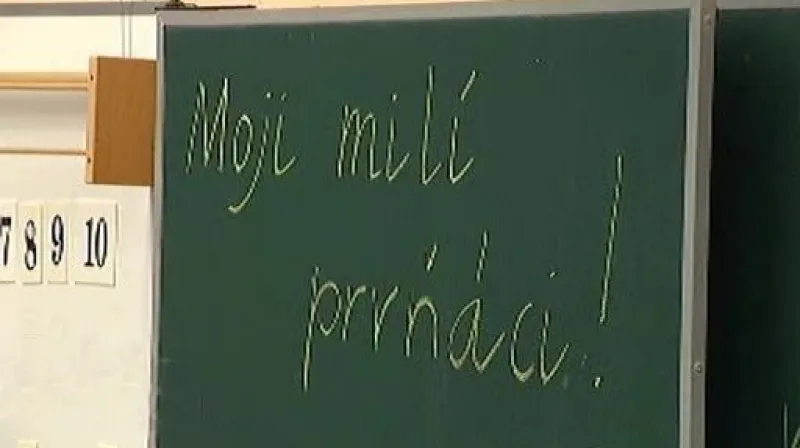 Moji milí
prvňáci!
7 8 9 10